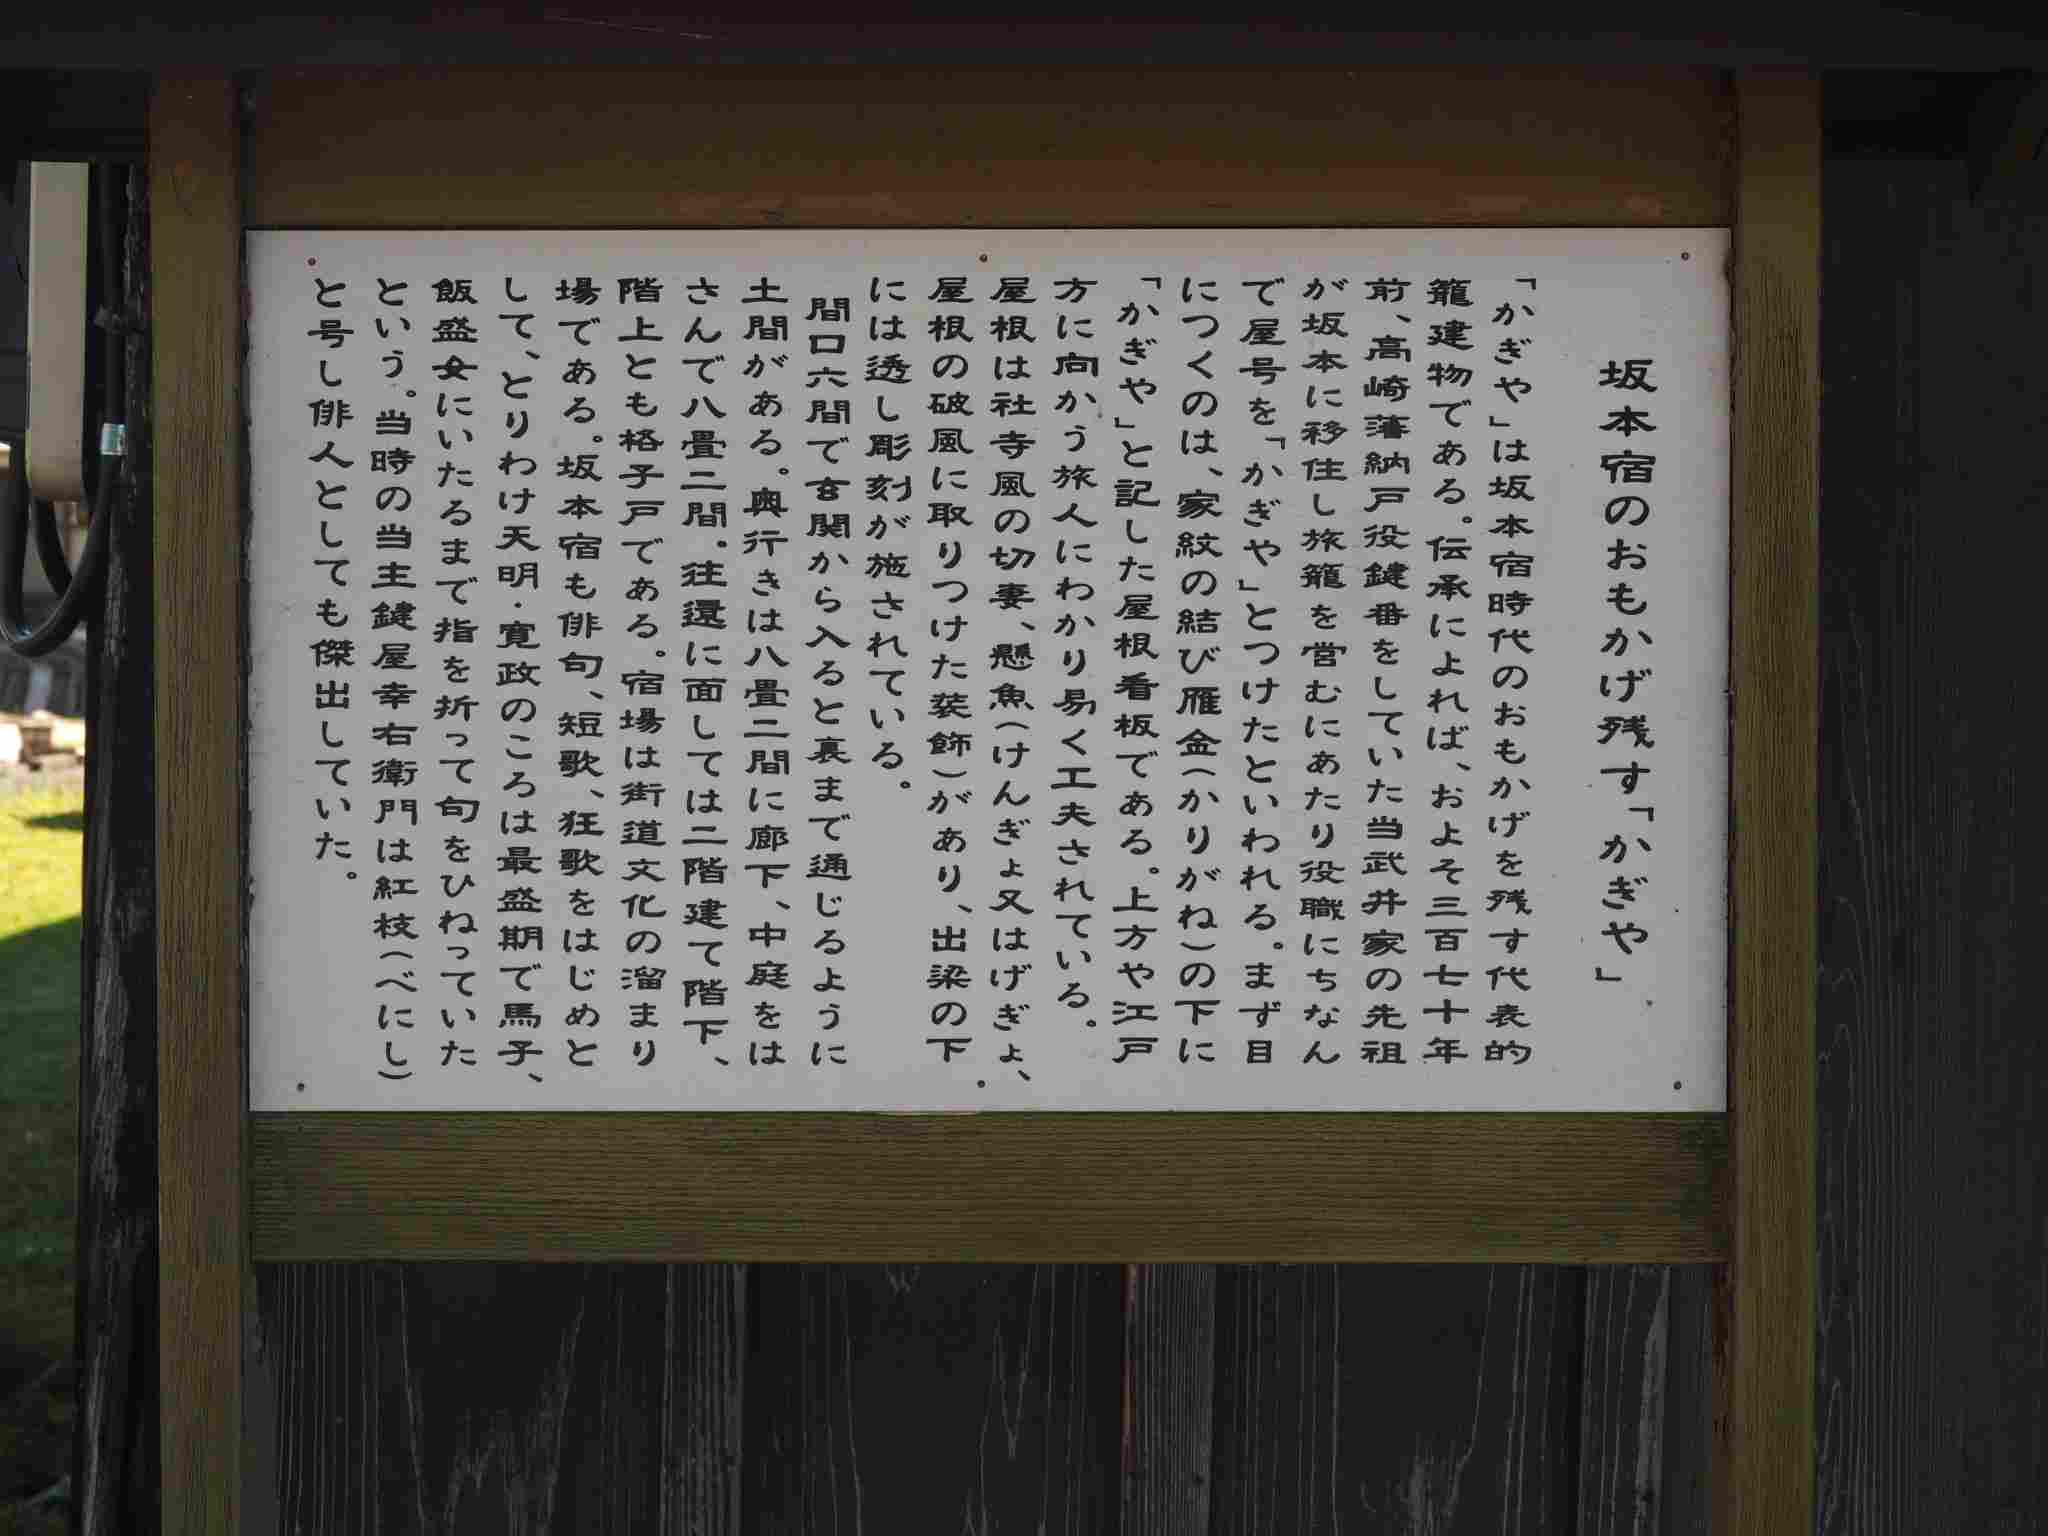 坂本宿のおもかげ残す「かぎや」
「かぎや」は坂本宿時代のおもかげを残す代表的
籠建物である。伝承によれば、およそ三百七十年
前、高崎藩納戸役鍵番をしていた当武井家の先祖
が坂本に移住し旅籠を営むにあたり役職にちなん
で屋号を「かぎや」とつけたといわれる。まず目
につくのは、家紋の結び雁金(かりがね)の下に
「かぎや」と記した屋根看板である。上方や江戸
方に向かう旅人にわかり易く工夫されている。
屋根は社寺風の切妻、懸魚(けんぎょ又はげぎょ、
屋根の破風に取りつけた装飾)があり、出梁の下
には透し彫刻が施されている。
間口六間で玄関から入ると裏まで通じるように
土間がある。奥行きは八畳二間に廊下、中庭をは
さんで八畳二間。往還に面しては二階建て階下、
階上とも格子戸である。宿場は街道文化の溜まり
場である。坂本宿も俳句、短歌、狂歌をはじめと
して、とりわけ天明・寛政のころは最盛期で馬子、
飯盛女にいたるまで指を折って句をひねっていた
という。当時の当主鍵屋幸右衛門は紅枝(べにし)
と号し俳人としても傑出していた。